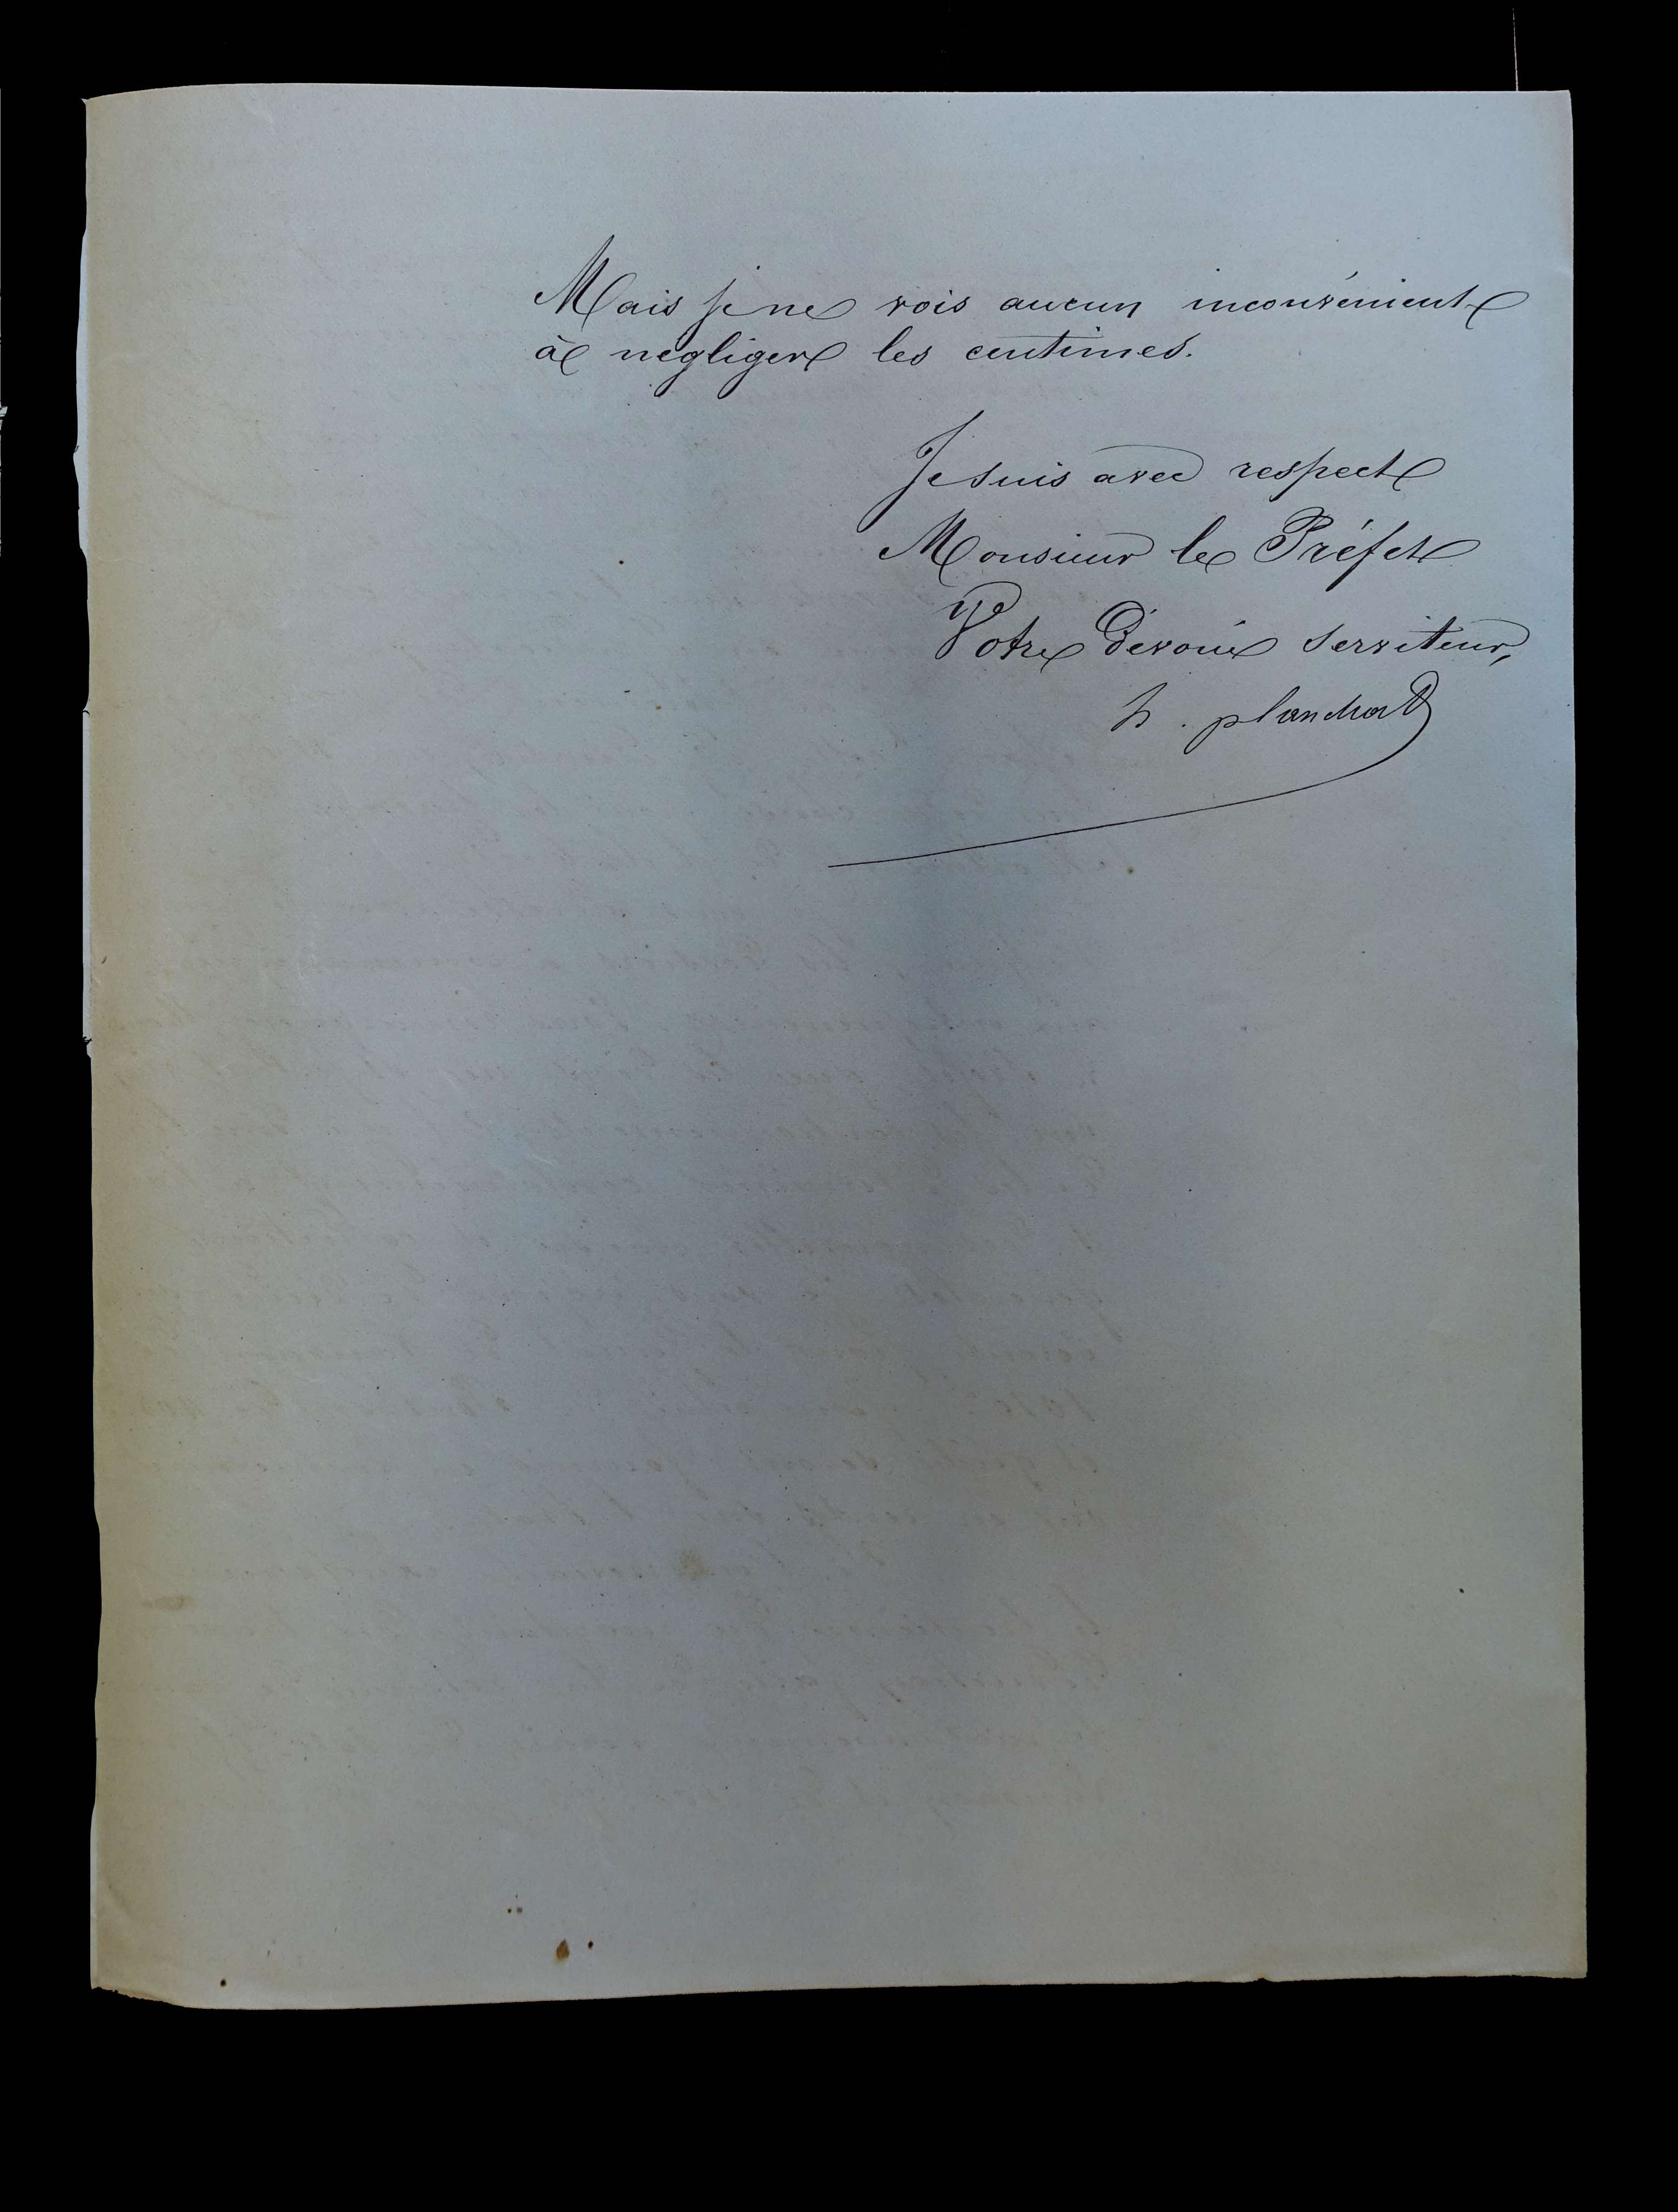 Mais je ne vois aucun inconvénient
à negliger les centimes.
Je suis avec respect
Monsieur le Préfet
Votre dévoué serviteur,
h. planchat